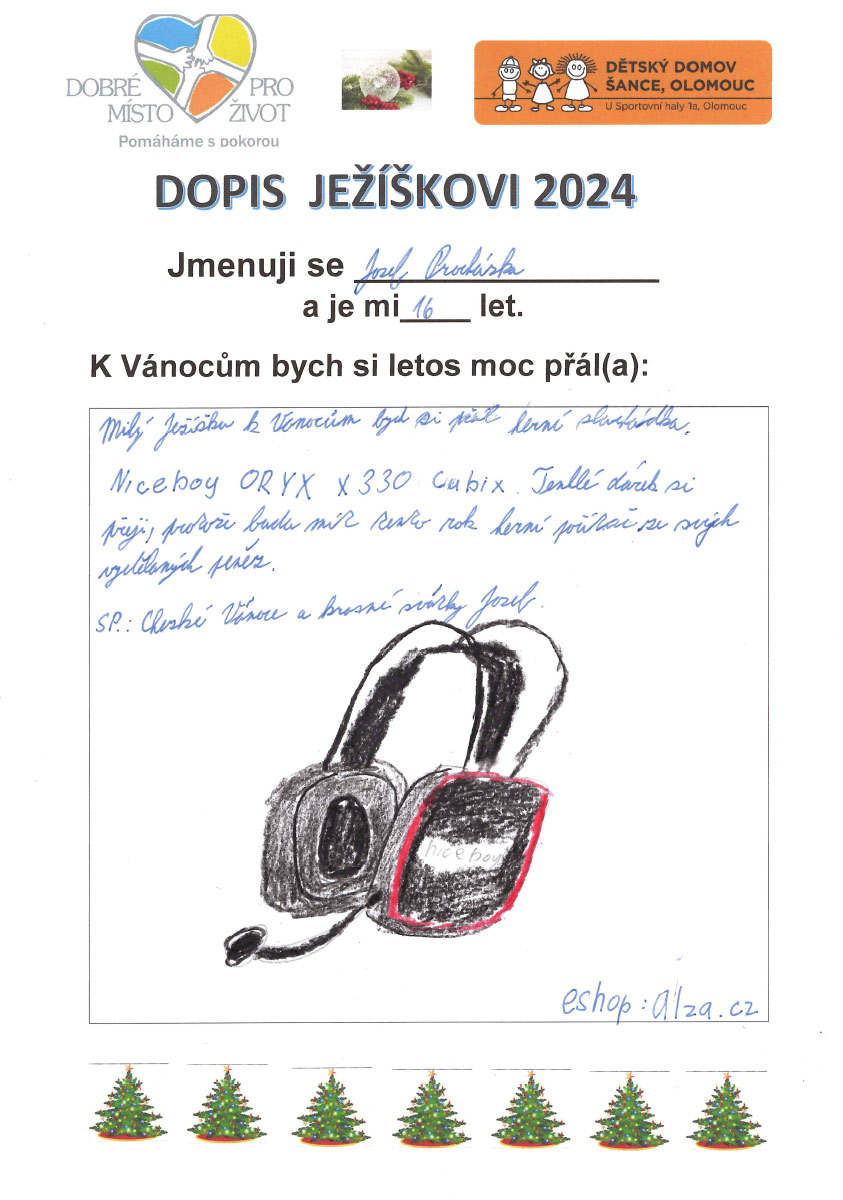 DOBRÉ PRO
MÍSTO ŽIVOT
Pomáháme s pokorou
DĚTSKÝ DOMOV
ŠANCE, OLOMOUC
U Sportovní haly 1a, Olomouc
DOPIS JEŽÍŠKOVI 2024
Jmenuji se Josef Procházka
a je mi 16 let.
K Vánocům bych si letos moc přál(a):
Milý Ježíšku k Vánocům bych si přál herné sluchádka.
Niceboy ORYX x330 Cubix. Tenhlé dárek si
přeji, protože budu mít tento rok herní počítač ze svých
vydělaných peněz.
SP.: Cheské Vánoce a krasné svátky Josef.
niceboy
eshop: alza.cz